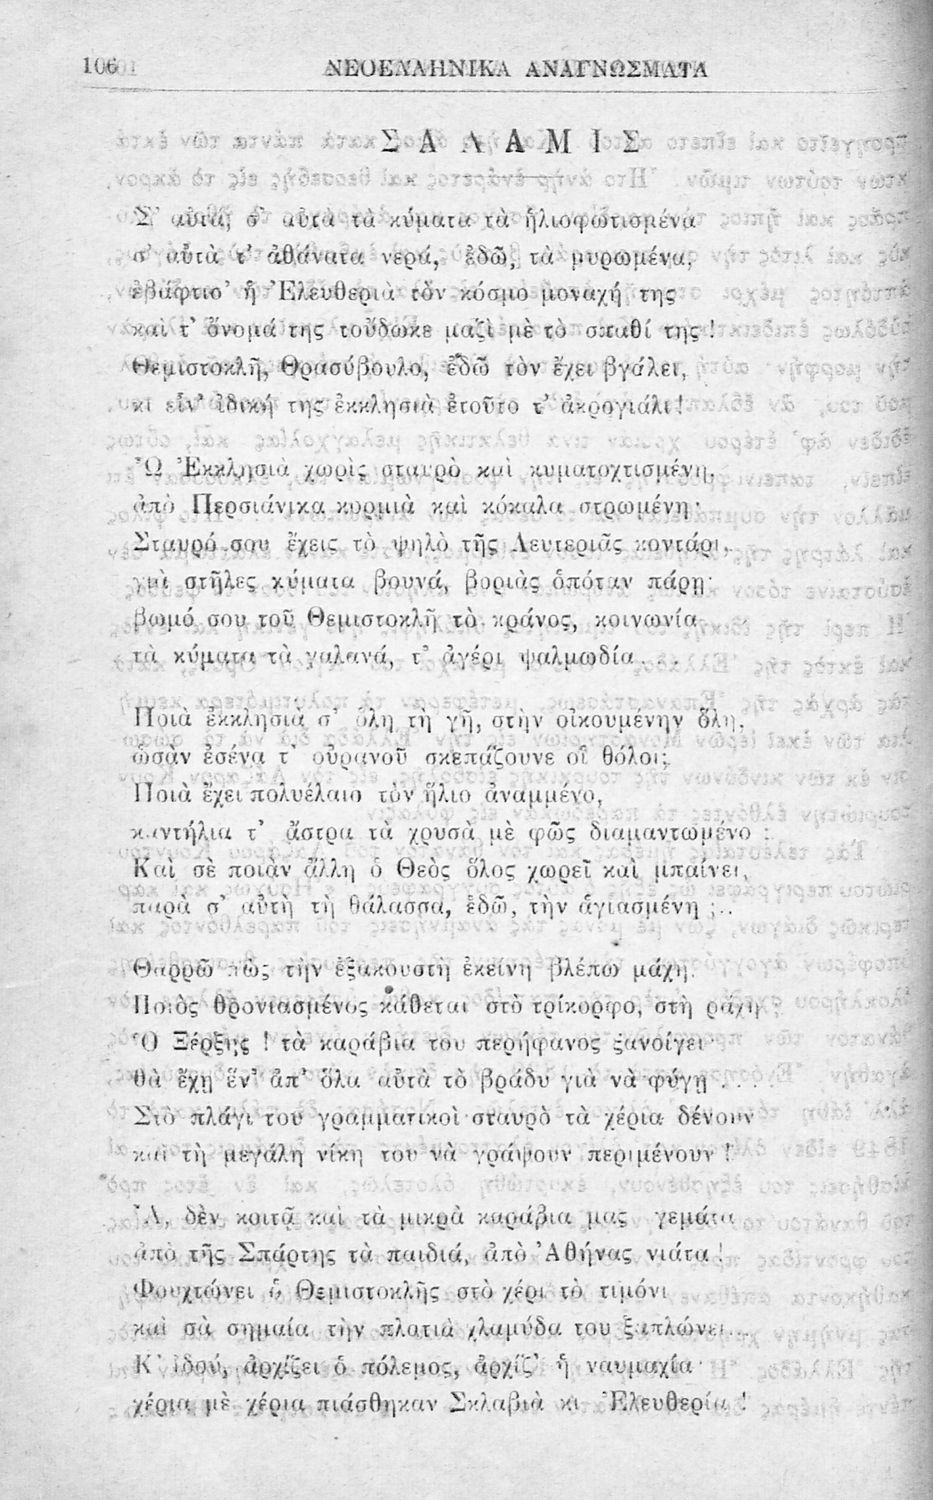 106
ΝΕΟΕΛΛΗΝΙΚΑ ΑΝΑΓΝΩΣΜΑΤΑ
ΣΑΛΑΜΙΣ
Σ' αὐτά, σ' αὐτὰ τὰ κύματα τὰ ἡλιοφωτισμένα
σ' αὐτὰ τ' ἀθάνατα νερά, ἐδῶ, τὰ μυρωμένα,
ἐβάφτισ' ἡ Ἐλευθεριὰ τὸν κόσμο μοναχή της
καὶ τ' ὄνομά της τοὔδωκε μαζὶ μὲ τὸ σπαθί της!
Θεμιστοκλῆ, Θρασύβουλο, ἐδῶ τὸν ἔχει βγάλει,
κι εἶν' ἰδική της ἐκκλησιὰ ἐτοῦτο τ' ἀκρογιάλι!
Ὦ Ἐκκλησιὰ χωρὶς σταυρὸ καὶ κυματοχτισμένη,
ἀπὸ Περσιάνικα κορμιὰ καὶ κόκαλα στρωμένη·
Σταυρό σου ἔχεις τὸ ψηλὸ τῆς Λευτεριᾶς κοντάρι,
γιὰ στῆλες κύματα βουνά, βοριὰς ὁπόταν πάρῃ·
βωμό σου τοῦ Θεμιστοκλῆ τὸ κράνος, κοινωνία
τὰ κύματα τὰ γαλανά, τ' ἀγέρι ψαλμωδία...
Ποιὰ ἐκκλησιὰ σ' ὅλη τὴ γῆ, στὴν οἰκουμένην ὅλη,
ὡσὰν ἐσένα τ' οὐρανοῦ σκεπάζουνε οἱ θόλοι;
Ποιὰ ἔχει πολυέλαιο τὸν ἥλιο ἀναμμένο,
καντήλια τ' ἄστρα τὰ χρυσὰ μὲ φῶς διαμαντωμένο;
Καὶ σὲ ποιὰν ἄλλη ὁ Θεὸς ὅλος χωρεῖ καὶ μπαίνει,
παρὰ σ' αὐτὴ τὴ θάλασσα, ἐδῶ, τὴν ἁγιασμένη;..
Θαρρῶ πὼς τὴν ἐξακουστὴ ἐκείνη βλέπω μάχη.
Ποιὸς θρονιασμένος κάθεται στὸ τρίκορφο, στὴ ράχη;
Ὁ Ξέρξης! τὰ καράβια του περήφανος ξανοίγει·
θὰ ἔχῃ ἕν' ἀπ' ὅλα αὐτὰ τὸ βράδυ γιὰ νὰ φύγῃ...
Στὸ πλάγι του γραμματικοὶ σταυρὸ τὰ χέρια δένουν
καὶ τὴ μεγάλη νίκη του νὰ γράψουν περιμένουν!
Ἄ, δὲν κοιτᾷ καὶ τὰ μικρὰ καράβια μας γεμάτα
ἀπὸ τῆς Σπάρτης τὰ παιδιά, ἀπὸ Ἀθήνας νιάτα!
Φουχτώνει ὁ Θεμιστοκλῆς στὸ χέρι τὸ τιμόνι
καὶ σὰ σημαία τὴν πλατιὰ χλαμύδα του ξαπλώνει..
Κ' ἰδού, ἀρχίζει ὁ πόλεμος, ἀρχίζ' ἡ ναυμαχία·
χέρια μὲ χέρια πιάσθηκαν Σκλαβιὰ κι Ἐλευθερία!